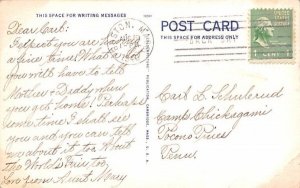 THIS SPACE FOR WRITING MESSAGES
POST CARD
THIS SPACE FOR ADDRESS ONLY
1 CENT
Dear Carl:
I expect you are having
a fine time. What a lot
you will have to tell
Mother & Daddy when
you get home! Perhaps
sometime I shall see
you and you can tell
me about it, too. About
The World's Fair, too.
Love from Aunt Mary
Carl L. Schulerud
Camp Chickagami
Pocono Pines
Penn